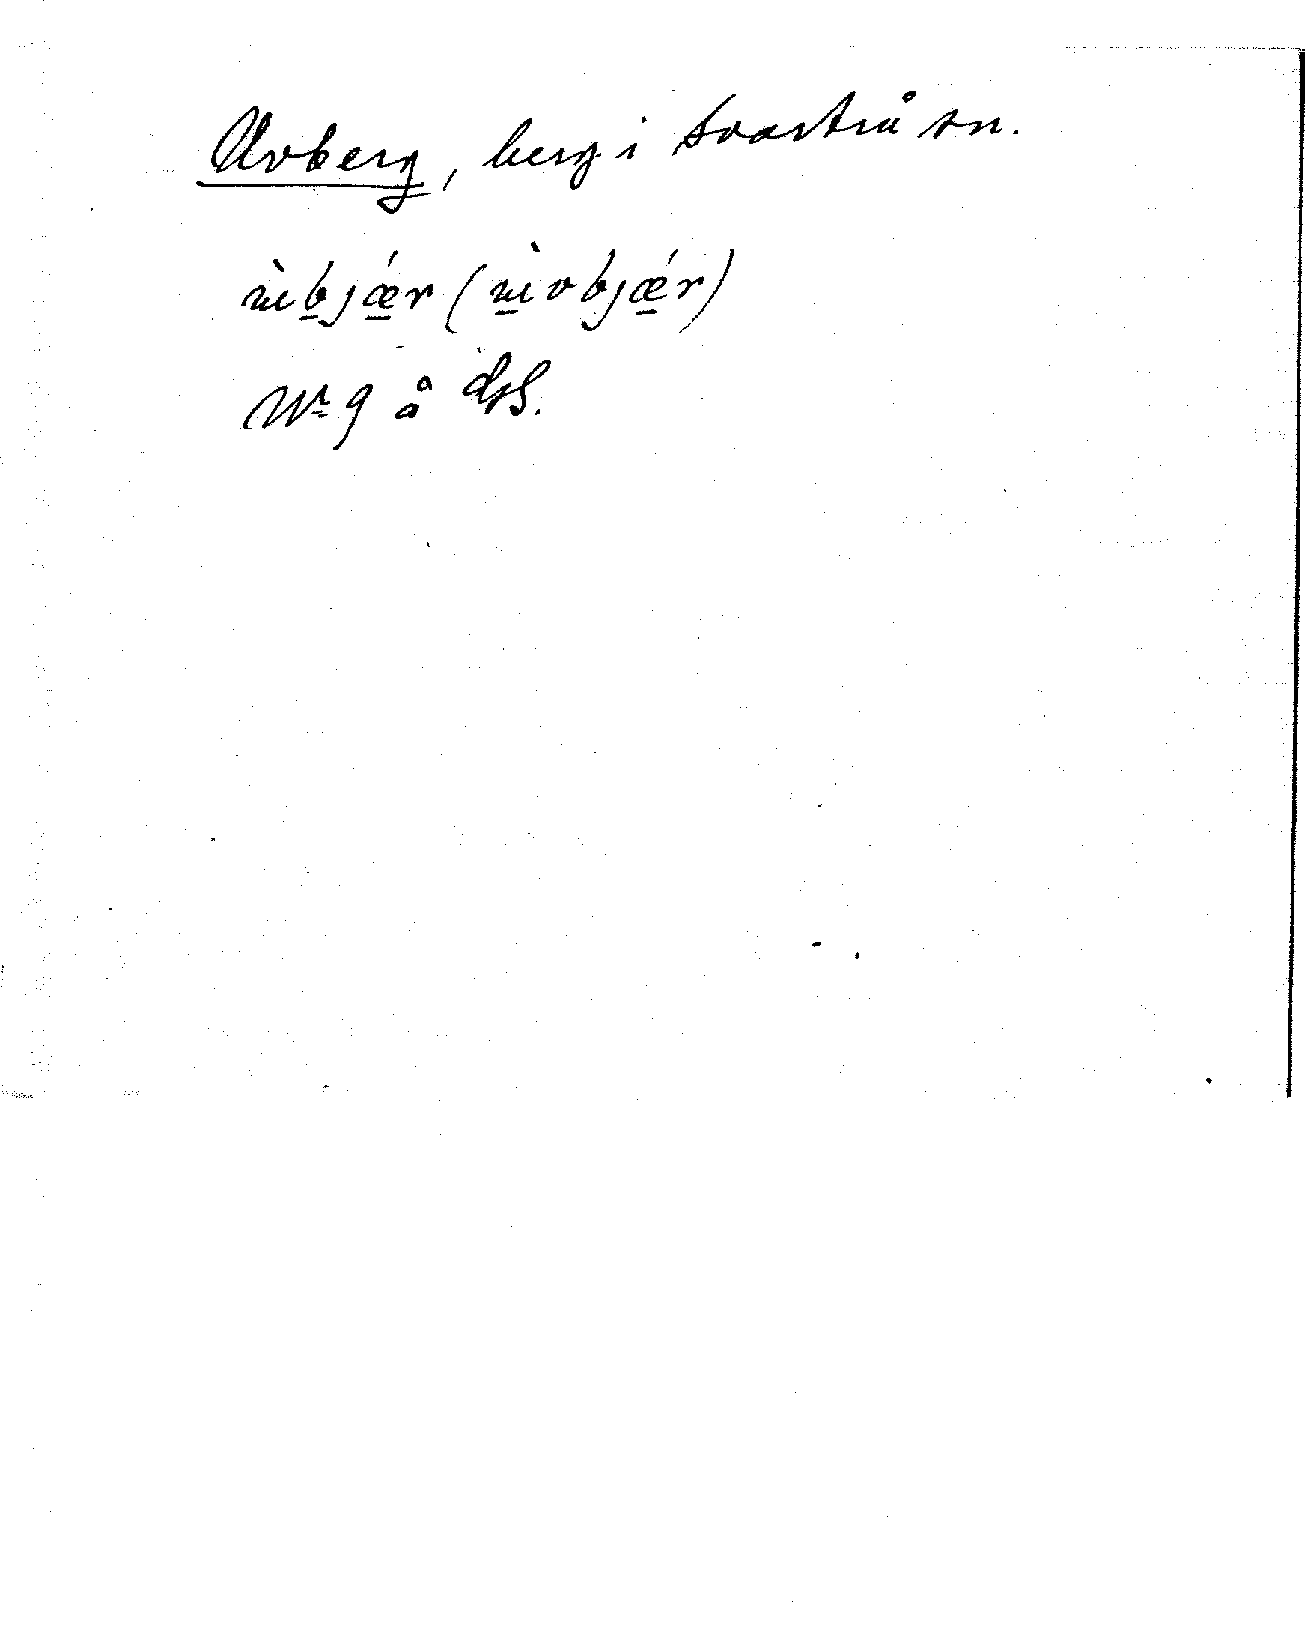 Uvberg, berg i Svartrå sn.
ùbjǽr (ùvbjǽr)
Nr 9 å